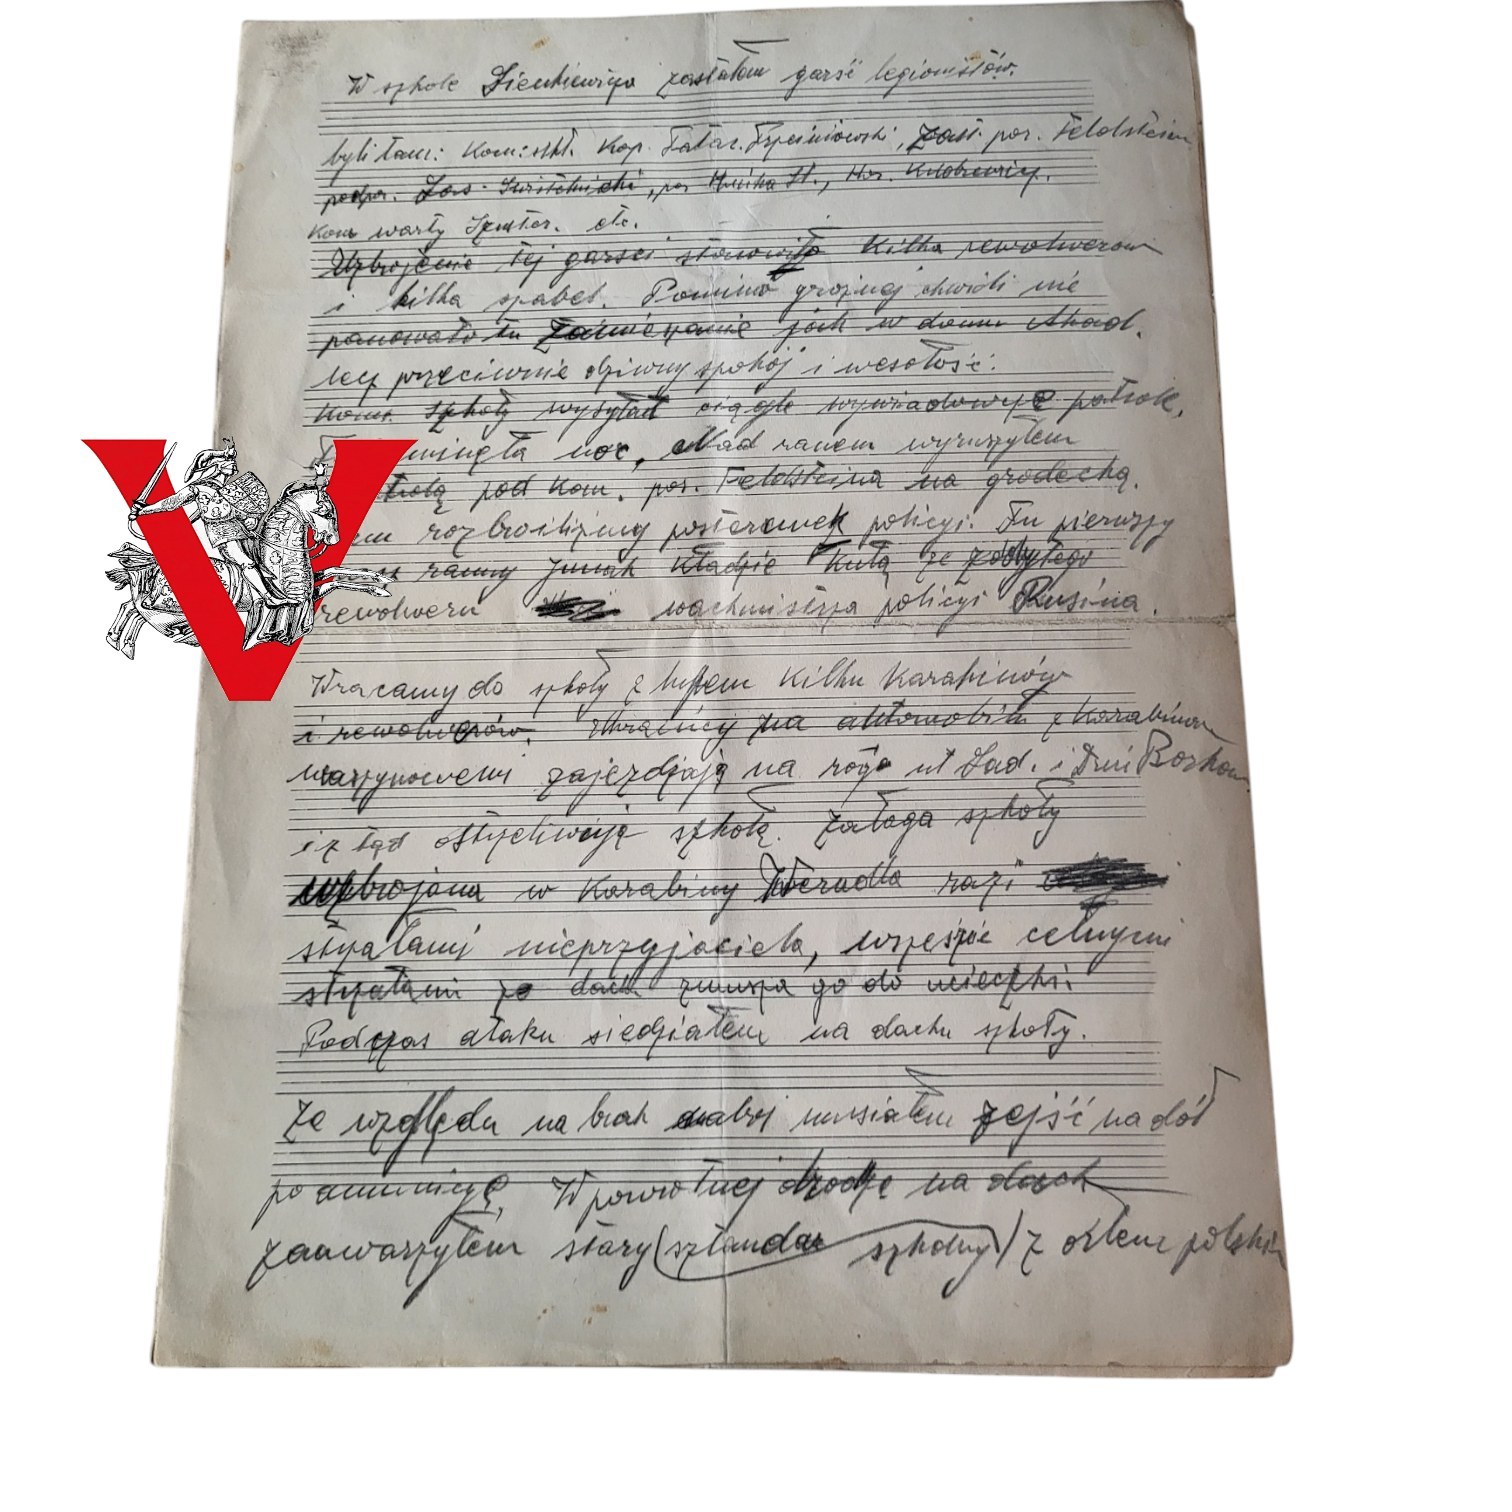 W szkole Sienkiewicza zastałem garść legionistów.
byli tam: Kom: szkł. Kap. Tatar. Trześniowski, Zast. por. Feldstein
podpor. Świetelnicki, por Mucha St.,
Kom warty etc.
Uzbrojenie tej garści stanowiło kilka rewolwerów
i kilka szabel. Pomimo groźnej chwili nie
panowało tu zamieszanie jak w domu Akad.
lecz przeciwnie dziwny spokój i wesołość.
Kom. szkoły wysyłał ciągle wywiadowcze patrole.
minęła noc, Nad ranem wyruszyłem
pod kom. por. Feldsteina na grodecką.
rozbroiliśmy posterunek policyi. Tu pierwszy
ranny junak kładzie kulą ze zdobytego
rewolweru wachmistrza policyi Rusina.
Wracamy do szkoły z łupem kilku karabinów
i rewolwerów. Ukraińcy na automobilu z karabinem
maszynowemi zajeżdżają na róg ul Sad. i Dwi Bożkow
i z tąd ostrzeliwują szkołę. załoga szkoły
uzbrojona w karabiny Werndla razi
strzałami nieprzyjaciela, wreszcie celnymi
strzałami z dachu zmusza go do ucieczki.
Podczas ataku siedziałem na dachu szkoły.
Ze względu na brak naboj musiałem zejść na dół
po amunicyę. W powrotnej drodze na dach
zauwarzyłem stary (sztandar szkolny) z orłem polskim